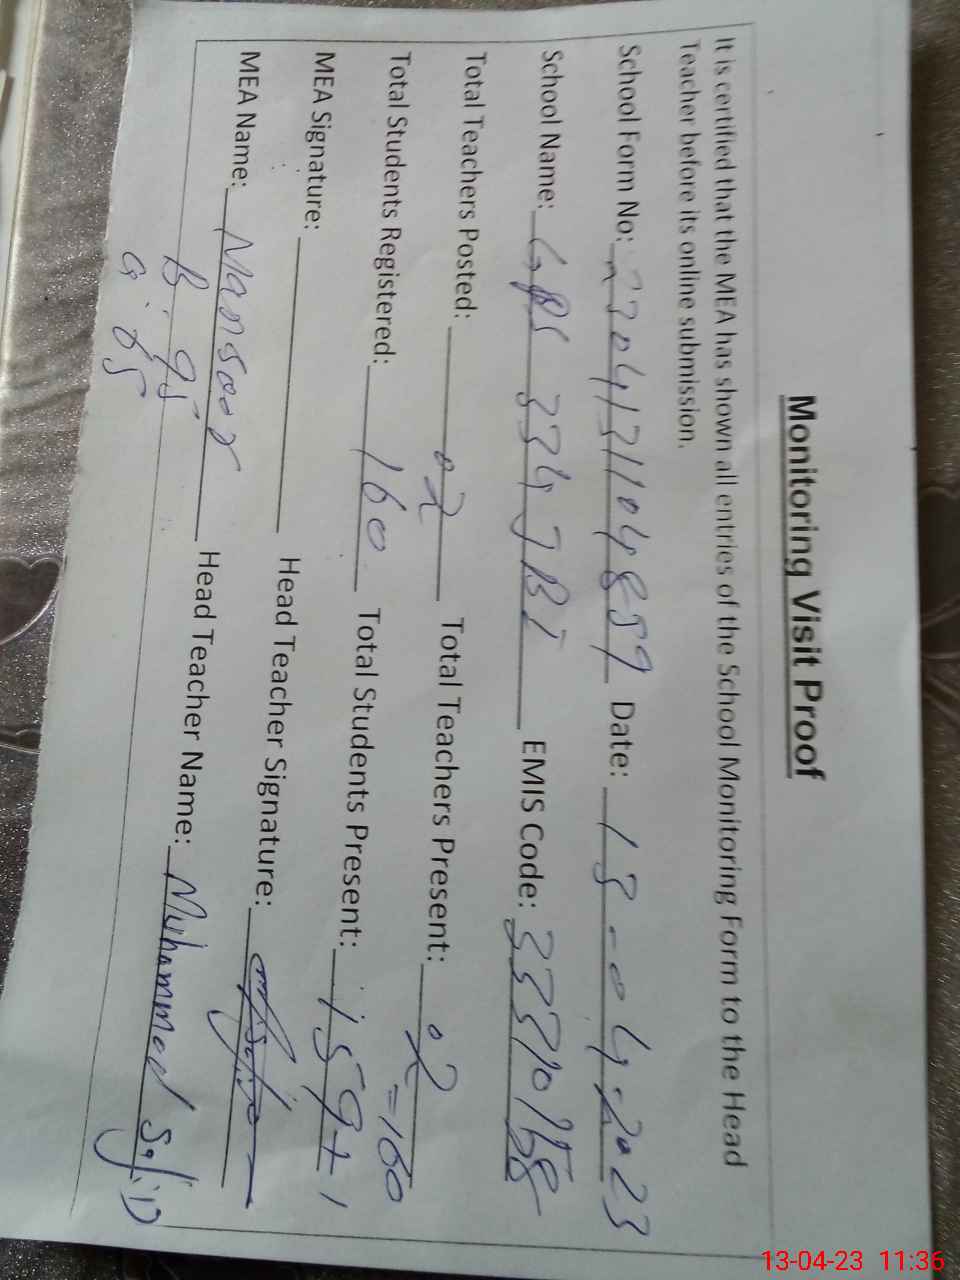 Monitoring Visit Proof
It is certified that the MEA has shown all entries of the School Monitoring Form to the Head
Teacher before its online submission.
School Form No: Date: 13-04-2023
School Name: GPS 334 JB I EMIS Code:
Total Teachers Posted: 02 Total Teachers Present: 02
Total Students Registered: 160 Total Students Present: 159+1 =160
MEA Signature: Head Teacher Signature:
MEA Name: Mansoor Head Teacher Name: Muhammad Sajid
B. 95
G. 65
13-04-23 11:36